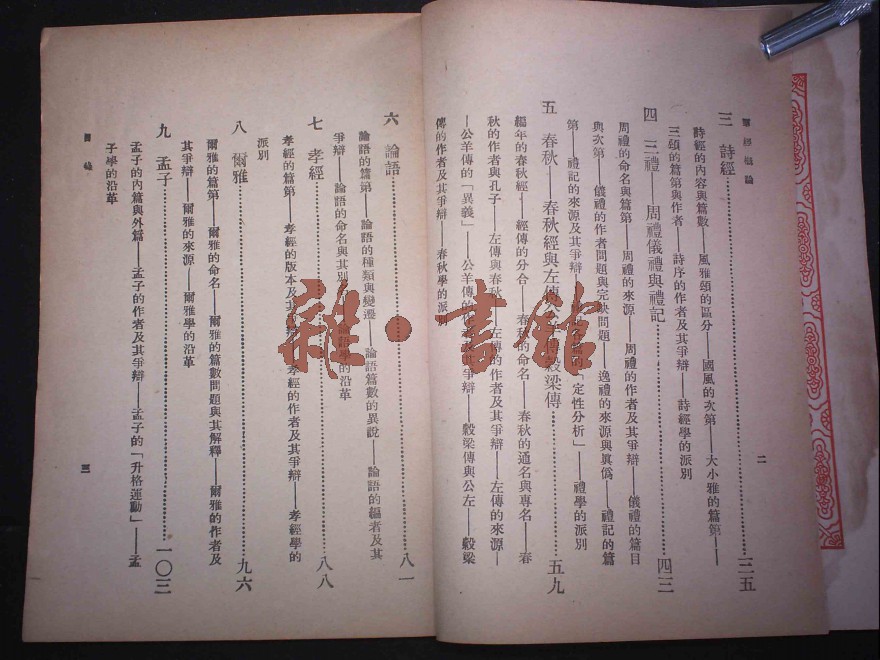 羣經概論
二
三　詩經……二五
詩經的內容與篇數——風雅頌的區分——國風的次第——大小雅的篇第——
三頌的篇第與作者——詩序的作者及其爭辯——詩經學的派別
四　三禮——周禮儀禮與禮記……四三
周禮的命名與篇第——周禮的來源——周禮的作者及其爭辯——儀禮的篇目
與次第——儀禮的作者問題與完缺問題——逸禮的來源與眞僞——禮記的篇
第——禮記的來源及其爭辯——「定性分析」——禮學的派別
五　春秋——春秋經與左傳公羊傳穀梁傳……五九
編年的春秋經——經傳的分合——春秋的命名——春秋的通名與專名——春
秋的作者與孔子——左傳與春秋——左傳的作者及其爭辯——左傳的來源—
—公羊傳的「異義」——公羊傳的作者及其爭辯——穀梁傳與公左——穀梁
傳的作者及其爭辯——春秋學的派別
六　論語……八一
論語的篇第——論語的種類與變遷——論語篇數的異說——論語的編者及其
爭辯——論語的命名與其別——論語學的沿革
七　孝經……八八
孝經的篇第——孝經的版本及其爭辯——孝經的作者及其爭辯——孝經學的
派別
八　爾雅……九六
爾雅的篇第——爾雅的命名——爾雅的篇數問題與其解釋——爾雅的作者及
其爭辯——爾雅的來源——爾雅學的沿革
九　孟子……一〇三
孟子的內篇與外篇——孟子的作者及其爭辯——孟子的「升格運動」——孟
子學的沿革
目錄
三
雜·書館